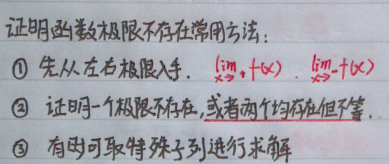 证明函数极限不存在常用方法:
① 先从左右极限入手. lim x→ + f(x). lim x→ - f(x)
② 证明一个极限不存在,或者两个均存在但不等.
③ 有时可取特殊子列进行求解